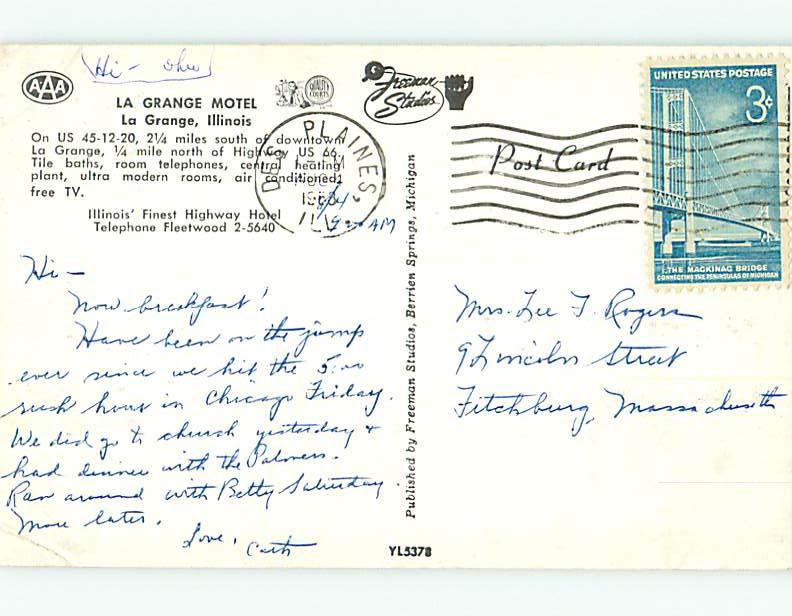 Hi - Ohio
AAA
QUALITY COURTS
Freeman Studios
LA GRANGE MOTEL
La Grange, Illinois
On US 45-12-20, 2¼ miles south of downtown
La Grange, ¼ mile north of Highway US 66,
Tile baths, room telephones, central heating
plant, ultra modern rooms, air conditioned,
free TV.
Illinois' Finest Highway Hotel
Telephone Fleetwood 2-5640
DES PLAINES,
ILL.
AM
Post Card
UNITED STATES POSTAGE
3¢
THE MACKINAC BRIDGE
CONNECTING THE PENINSULAS OF MICHIGAN
Hi -
Now breakfast!
Have been on the jump
ever since we hit the 5:00
rush hour in Chicago Friday.
We did go to church yesterday &
had dinner with the Palmers.
Ran around with Betty Saturday.
More later.
Love,
Published by Freeman Studios, Berrien Springs, Michigan
YL5378
Mrs. Lee J. Rogers
9 Lincoln Street
Fitchburg, Massachusetts